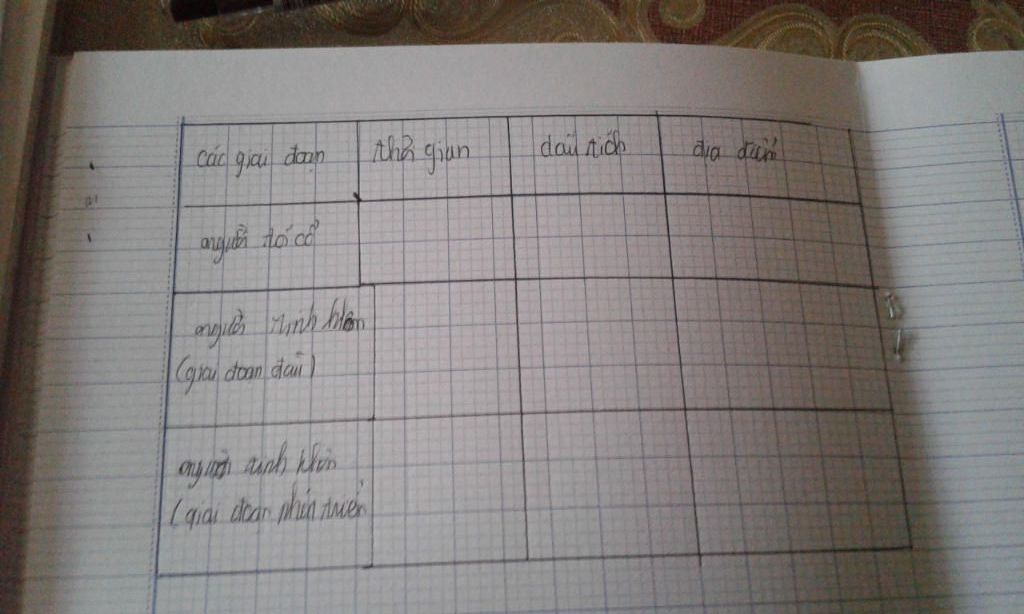 các giai đoạn
thời gian
dấu tích
địa điểm
người tối cổ
người tinh khôn
(giai đoạn đầu)
người tinh khôn
(giai đoạn phát triển